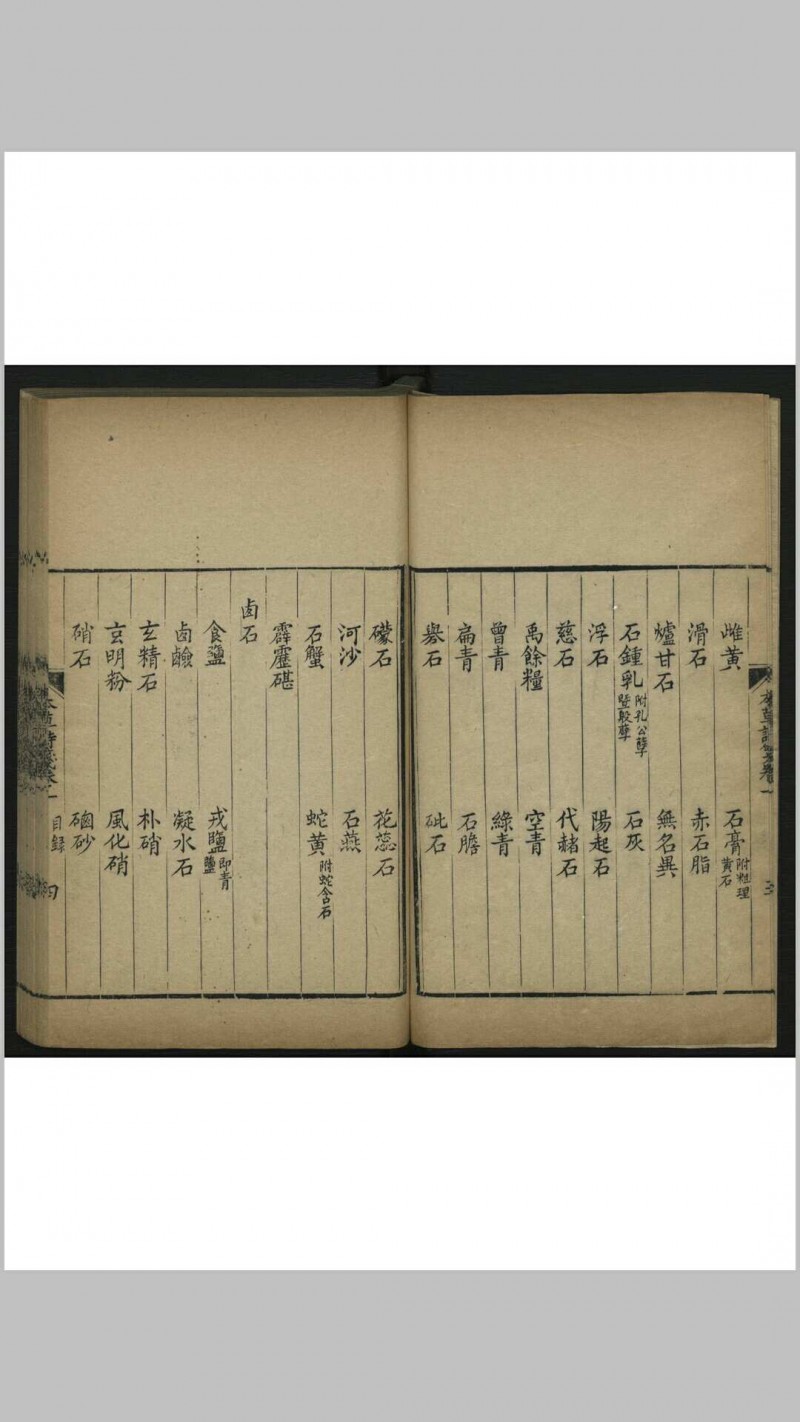 雌黃 石膏附粗理黃石
滑石 赤石脂
爐甘石 無名異
石鍾乳附孔公孽暨殷孽 石灰
浮石 陽起石
慈石 代赭石
禹餘糧 空青
曾青 綠青
扁青 石膽
礜石 砒石
礞石 花蕊石
河沙 石燕
石蟹 蛇黃附蛇含石
霹靂碪
鹵石
食鹽 戎鹽即青鹽
鹵鹼 凝水石
玄精石 朴硝
玄明粉 風化硝
硝石 硇砂
目錄